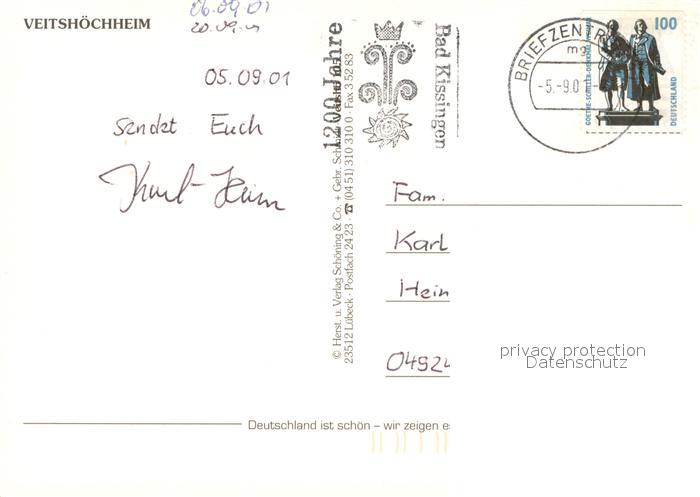 VEITSHÖCHHEIM
06.09.01
20.09.01
05.09.01
sendet Euch
Karl-Heinz
1200 Jahre
Bad Kissingen
© Herst. u. Verlag Schöning & Co. + Gebr. Schmidt
23512 Lübeck · Postfach 24 23 · ☎ (04 51) 310 310 0 · Fax 3 52 83
BRIEFZENTR
mg
-5.-9.0
100
GOETHE-SCHILLER-DENKMAL WEIMAR
DEUTSCHLAND
Fam.
Karl
Hein
0492
privacy protection
Datenschutz
Deutschland ist schön – wir zeigen es